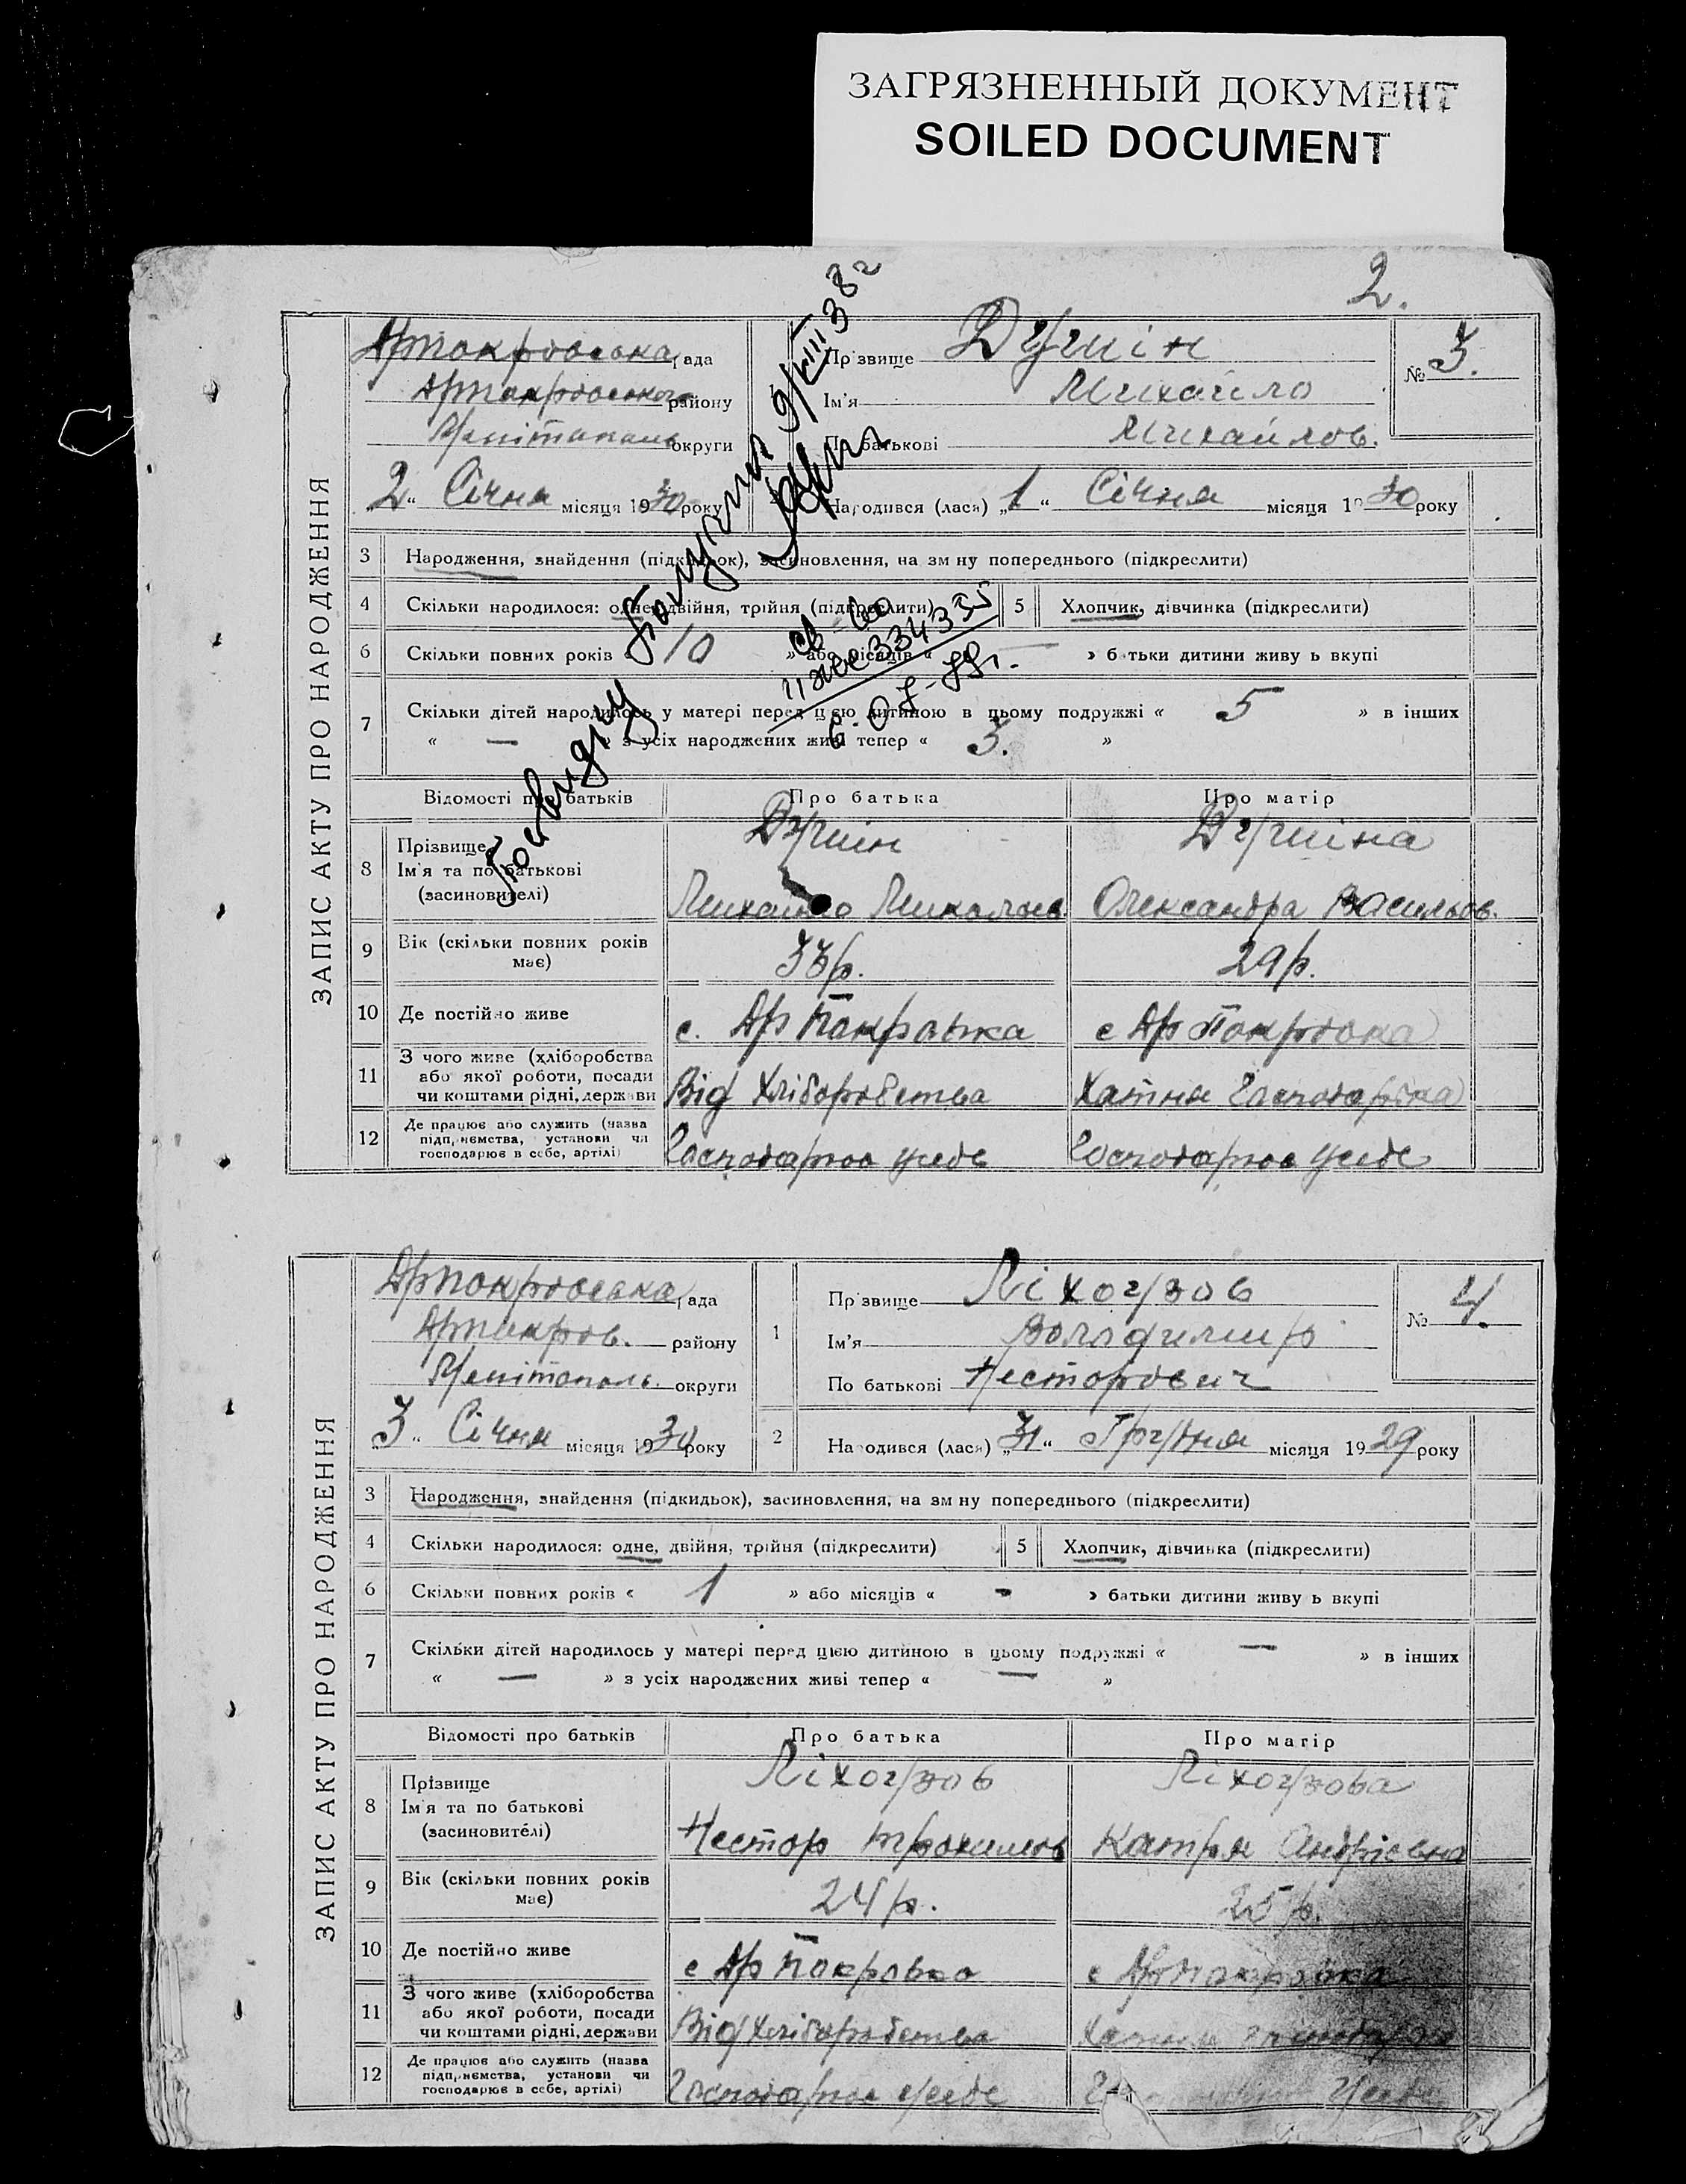 ЗАГРЯЗНЕННЫЙ ДОКУМЕНТ
SOILED DOCUMENT
2.
ЗАПИС АКТУ ПРО НАРОДЖЕННЯ
Арпокровська рада
Арпокровського району
Мелітополь округи
2 " Січня місяця 1930 року
Прізвище Душін
Ім'я Михайло
По батькові Михайлов.
№ 3.
Народився (лася) „1“ Січня місяця 1930 року
3 Народження, знайдення (підкидьок), засиновлення, на зміну попереднього (підкреслити)
4 Скільки народилося: одне, двійня, трійня (підкреслити)
5 Хлопчик, дівчинка (підкреслити)
6 Скільки повних років « 10 » або місяців « — » батьки дитини живуть вкупі
7 Скільки дітей народилось у матері перед цією дитиною в цьому подружжі « 5 » в інших
« — » з усіх народжених живі тепер « 3. »
9/VIII 38 г
св-во
334335
6-07-79г.
Відомості про батьків Про батька Про матір
8 Прізвище
Ім'я та по батькові
(засновителі)
Душін
Михайло Миколаєв
Душіна
Олександра Васильов.
9 Вік (скільки повних років має) 33р. 29р.
10 Де постійно живе с. Ар Покровка с Ар Покровка
11 З чого живе (хліборобства
або якої роботи, посади
чи коштами рідні, держави
Від Хліборобства Хатня Господарка
12 Де працює або служить (назва
підприємства, установи чи
господарює в себе, артілі)
Господарює усебе Господарює усебе
ЗАПИС АКТУ ПРО НАРОДЖЕННЯ
Арпокровська рада
Арпокров. району
Мелітополь. округи
3 " Січня місяця 1930 року
1 Прізвище Ліхогузов
Ім'я Володимир
По батькові Несторович
№ 4.
2 Народився (лася) „31“ Грудня місяця 1929 року
3 Народження, знайдення (підкидьок), засиновлення, на зміну попереднього (підкреслити)
4 Скільки народилося: одне, двійня, трійня (підкреслити)
5 Хлопчик, дівчинка (підкреслити)
6 Скільки повних років « 1 » або місяців « - » батьки дитини живуть вкупі
7 Скільки дітей народилось у матері перед цією дитиною в цьому подружжі « — » в інших
« — » з усіх народжених живі тепер « — »
Відомості про батьків Про батька Про матір
8 Прізвище
Ім'я та по батькові
(засиновителі)
Ліхогузов
Нестор Трохимов
Ліхогузова
Катря Андрієвна
9 Вік (скільки повних років має) 24р. 25р.
10 Де постійно живе с Ар Покровка с Ар Покровка
11 З чого живе (хліборобства
або якої роботи, посади
чи коштами рідні, держави
Від Хліборобства Хатня
12 Де працює або служить (назва
підприємства, установи чи
господарює в себе, артілі)
Господарює усебе усебе